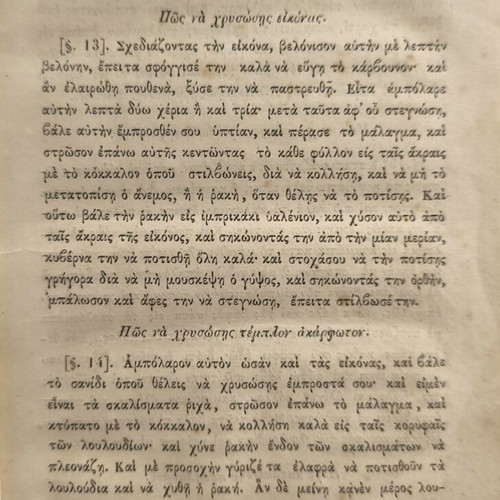 Πῶς νὰ χρυσώσῃς εἰκόνας.
[§. 13]. Σχεδιάζοντας τὴν εἰκόνα, βελόνισον αὐτὴν μὲ λεπτὴν
βελόνην, ἔπειτα σφόγγισέ την καλὰ νὰ εὔγῃ τὸ κάρβουνον· καὶ
ἂν ἐλαιρώθη πουθενὰ, ξύσε την νὰ παστρευθῇ. Εἶτα ἀμπόλαρε
αὐτὴν λεπτὰ δύω χέρια ἢ καὶ τρία· μετὰ ταῦτα ἀφ' οὗ στεγνώσῃ,
βάλε αὐτὴν ἔμπροσθέν σου ὑπτίαν, καὶ πέρασε τὸ μάλαγμα, καὶ
στρῶσον ἐπάνω αὐτῆς κεντώντας τὸ κάθε φύλλον εἰς ταῖς ἄκραις
μὲ τὸ κόκκαλον ὁποῦ στιλβώνεις, διὰ νὰ κολλήσῃ, καὶ νὰ μὴ τὸ
μετατοπίσῃ ὁ ἄνεμος, ἢ ἡ ῥακὴ, ὅταν θέλῃς νὰ τὸ ποτίσῃς. Καὶ
οὕτω βάλε τὴν ῥακὴν εἰς ἰμπρικάκι ὑαλένιον, καὶ χύσον αὐτὸ ἀπὸ
ταῖς ἄκραις τῆς εἰκόνος, καὶ σηκώνοντάς την ἀπὸ τὴν μίαν μερίαν,
κυβέρνα την νὰ ποτισθῇ ὅλη καλά· καὶ στοχάσου νὰ τὴν ποτίσῃς
γρήγορα διὰ νὰ μὴ μουσκέψῃ ὁ γύψος, καὶ σηκώνοντάς την ὀρθὴν,
ἀμπάλωσον καὶ ἄφες την νὰ στεγνώσῃ, ἔπειτα στίλβωσέ την.
Πῶς νὰ χρυσώσῃς τέμπλον ἀκάρφωτον.
[§. 14]. Ἀμπόλαρον αὐτὸν ὡσὰν καὶ τὰς εἰκόνας, καὶ βάλε
τὸ σανίδι ὁποῦ θέλεις νὰ χρυσώσῃς ἐμπροστά σου· καὶ εἰμὲν
εἶναι τὰ σκαλίσματα ῥιχὰ, στρῶσον ἐπάνω τὸ μάλαγμα, καὶ
κτύπατο μὲ τὸ κόκκαλον, νὰ κολλήσῃ καλὰ εἰς ταῖς κορυφαῖς
τῶν λουλουδίων· καὶ χύνε ῥακὴν ἔνδον τῶν σκαλισμάτων νὰ
πλεονάζῃ. Καὶ μὲ προσοχὴν γύριζέ τα ἐλαφρὰ νὰ ποτισθοῦν τὰ
λουλούδια καὶ νὰ χυθῇ ἡ ῥακή. Ἂν δὲ μείνῃ κᾀνὲν μέρος λου-